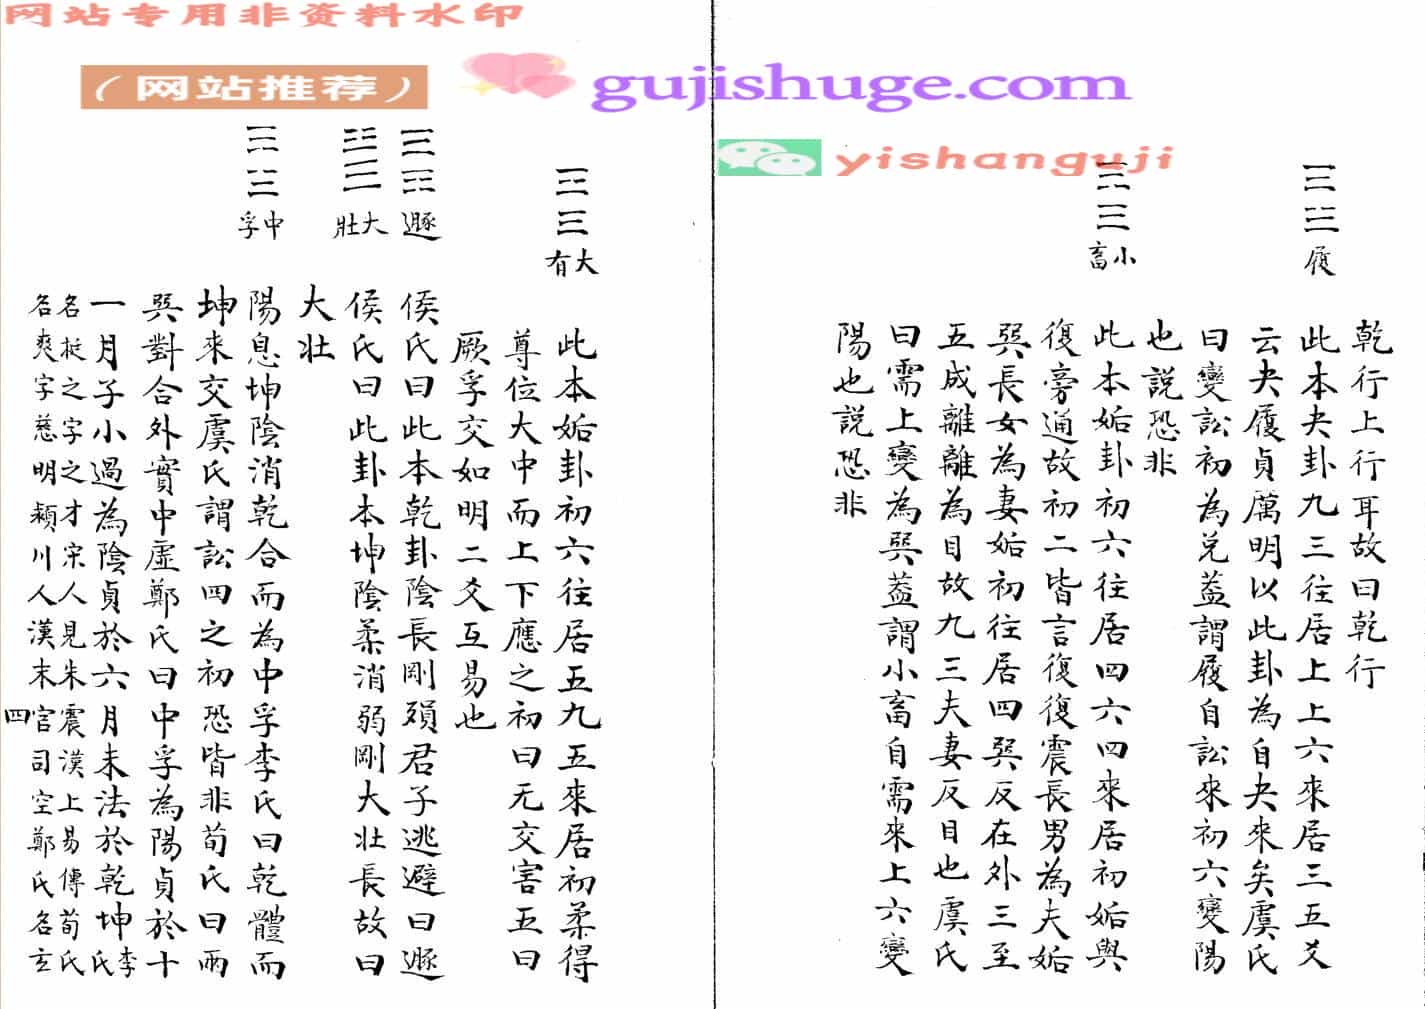 网站专用非资料水印
（网站推荐）
gujishuge.com
yishanguji
履
乾行上行耳故曰乾行
此本夬卦九三往居上上六來居三五爻
云夬履貞厲明以此卦為自夬來矣虞氏
曰變訟初為兌蓋謂履自訟來初六變陽
也說恐非
小畜
此本姤卦初六往居四六四來居初姤與
復旁通故初二皆言復復震長男為夫姤
巽長女為妻姤初往居四巽反在外三至
五成離離為目故九三夫妻反目也虞氏
曰需上變為巽蓋謂小畜自需來上六變
陽也説恐非
大有
此本姤卦初六往居五九五來居初柔得
尊位大中而上下應之初曰无交害五曰
厥孚交如明二爻互易也
遯
侯氏曰此本乾卦陰長剛殞君子逃避曰遯
大壯
侯氏曰此卦本坤陰柔消弱剛大壯長故曰
大壯
中孚
陽息坤陰消乾合而為中孚李氏曰乾體而
坤來交虞氏謂訟四之初恐皆非荀氏曰兩
巽對合外實中虛鄭氏曰中孚為陽貞於十
一月子小過為陰貞於六月未法於乾坤李氏
名挺之字之才宋人見朱震漢上易傳荀氏
名爽字慈明潁川人漢末官司空鄭氏名玄
四